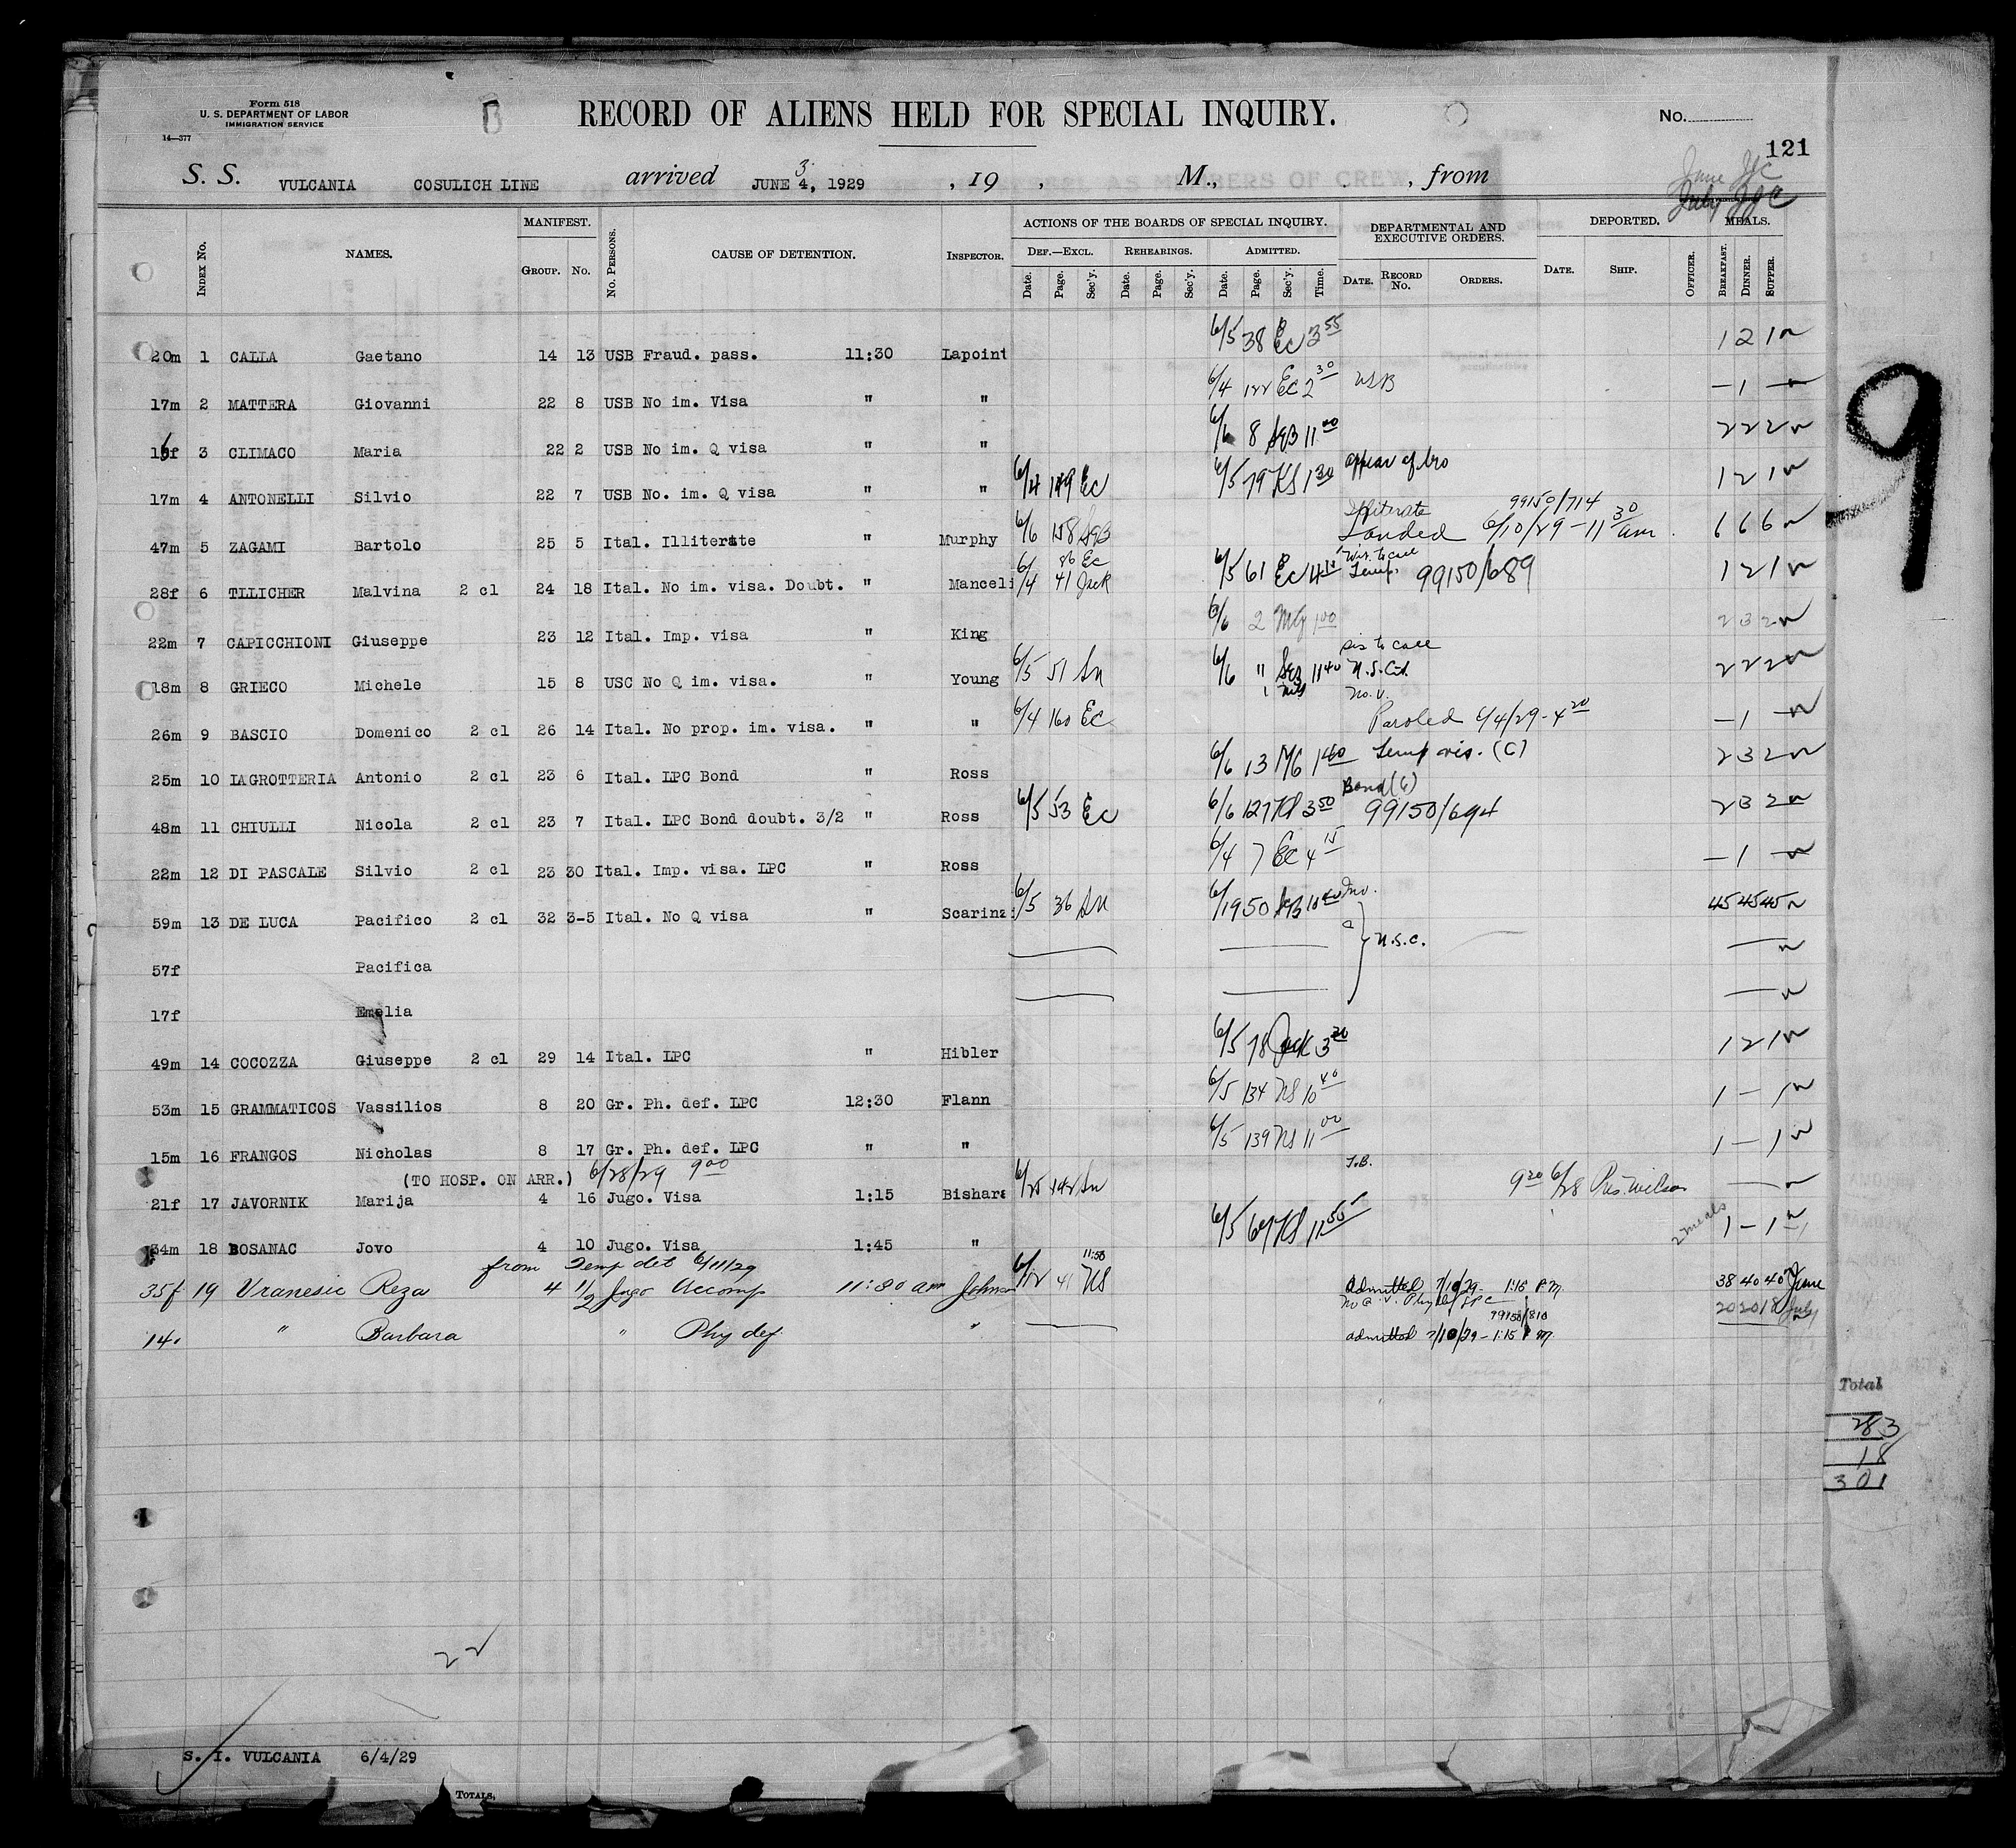 Form 518
U. S. DEPARTMENT OF LABOR
IMMIGRATION SERVICE
14—377
RECORD OF ALIENS HELD FOR SPECIAL INQUIRY.
No.
121
S. S. VULCANIA COSULICH LINE arrived JUNE 4, 1929 , 19 , M., , from
3
June
July
INDEX No. NAMES. MANIFEST. GROUP. No. No. PERSONS. CAUSE OF DETENTION. INSPECTOR. ACTIONS OF THE BOARDS OF SPECIAL INQUIRY. DEPARTMENTAL AND EXECUTIVE ORDERS. DEPORTED. MEALS.
DEF.—EXCL. REHEARINGS. ADMITTED.
Date. Page. Sec'y. Date. Page. Sec'y. Date. Page. Sec'y. Time. DATE. RECORD No. ORDERS. DATE. SHIP. OFFICER. BREAKFAST. DINNER. SUPPER.
20m 1 CALLA Gaetano 14 13 USB Fraud. pass. 11:30 Lapoint 6/5 38 EC 3 55 1 2 1
17m 2 MATTERA Giovanni 22 8 USB No im. Visa " " 6/4 122 EC 2 30 USB — 1 —
16f 3 CLIMACO Maria 22 2 USB No im. Q visa " " 6/6 8 11 00 2 2 2
17m 4 ANTONELLI Silvio 22 7 USB No. im. Q visa " " 6/4 149 EC 6/5 79 KS 1 30 appear of bro 1 2 1
47m 5 ZAGAMI Bartolo 25 5 Ital. Illiterate " Murphy 6/6 158 Illiterate 99150/714
Landed 6/10/29 - 11 30 am. 6 6 6
28f 6 TLLICHER Malvina 2 cl 24 18 Ital. No im. visa. Doubt. " Manceli 6/4 41 Jack 86 EC 6/5 61 EC 4 10 to call Temp. 99150/689 1 2 1
22m 7 CAPICCHIONI Giuseppe 23 12 Ital. Imp. visa " King 6/6 2 1 00 2 3 2
18m 8 GRIECO Michele 15 8 USC No Q im. visa. " Young 6/5 51 Sn 6/6 11 11 40 sis to call U.S. Cit. no. v. 2 2 2
26m 9 BASCIO Domenico 2 cl 26 14 Ital. No prop. im. visa. " " 6/4 160 EC Paroled 6/4/29 - 4 20 — 1 —
25m 10 IAGROTTERIA Antonio 2 cl 23 6 Ital. LPC Bond " Ross 6/6 13 MG 1 40 Temp vis. (C) 2 3 2
48m 11 CHIULLI Nicola 2 cl 23 7 Ital. LPC Bond doubt. 3/2 " Ross 6/5 53 EC 6/6 127 KS 3 50 Bond 99150/694 2 3 2
22m 12 DI PASCALE Silvio 2 cl 23 30 Ital. Imp. visa. LPC " Ross 6/4 7 EC 4 15 — 1 —
59m 13 DE LUCA Pacifico 2 cl 32 3-5 Ital. No Q visa " Scarinzi 6/5 36 Sn 6/19 50 10 40 U.S.C. 45 45 45
57f Pacifica
17f Emelia
49m 14 COCOZZA Giuseppe 2 cl 29 14 Ital. LPC " Hibler 6/5 78 Jack 3 20 1 2 1
53m 15 GRAMMATICOS Vassilios 8 20 Gr. Ph. def. LPC 12:30 Flann 6/5 134 NS 10 40 1 — 1
15m 16 FRANGOS Nicholas 8 17 Gr. Ph. def. LPC " " 6/5 139 NS 11 00 1 — 1
(TO HOSP. ON ARR.) 6/28/29 9 00
21f 17 JAVORNIK Marija 4 16 Jugo. Visa 1:15 Bishara 6/25 142 Sn 9 20 6/28 Pres. Wilson
34m 18 BOSANAC Jovo 4 10 Jugo. Visa 1:45 " 6/5 64 KS 11 55 2 meals 1 — 1
from Temp det 6/11/29
35f 19 Vranesic Reza 4 1/2 Jugo Accomp 11:30 am Johnson 6/12 41 NS 11:50 Admitted 7/10/29 - 1:15 P.M. 38 40 40 June
99150/810 20 20 18 July
14 " Barbara " Phy def " admitted 7/10/29 - 1:15 P.M.
9
Total
283
18
301
22
S. I. VULCANIA 6/4/29
TOTALS,